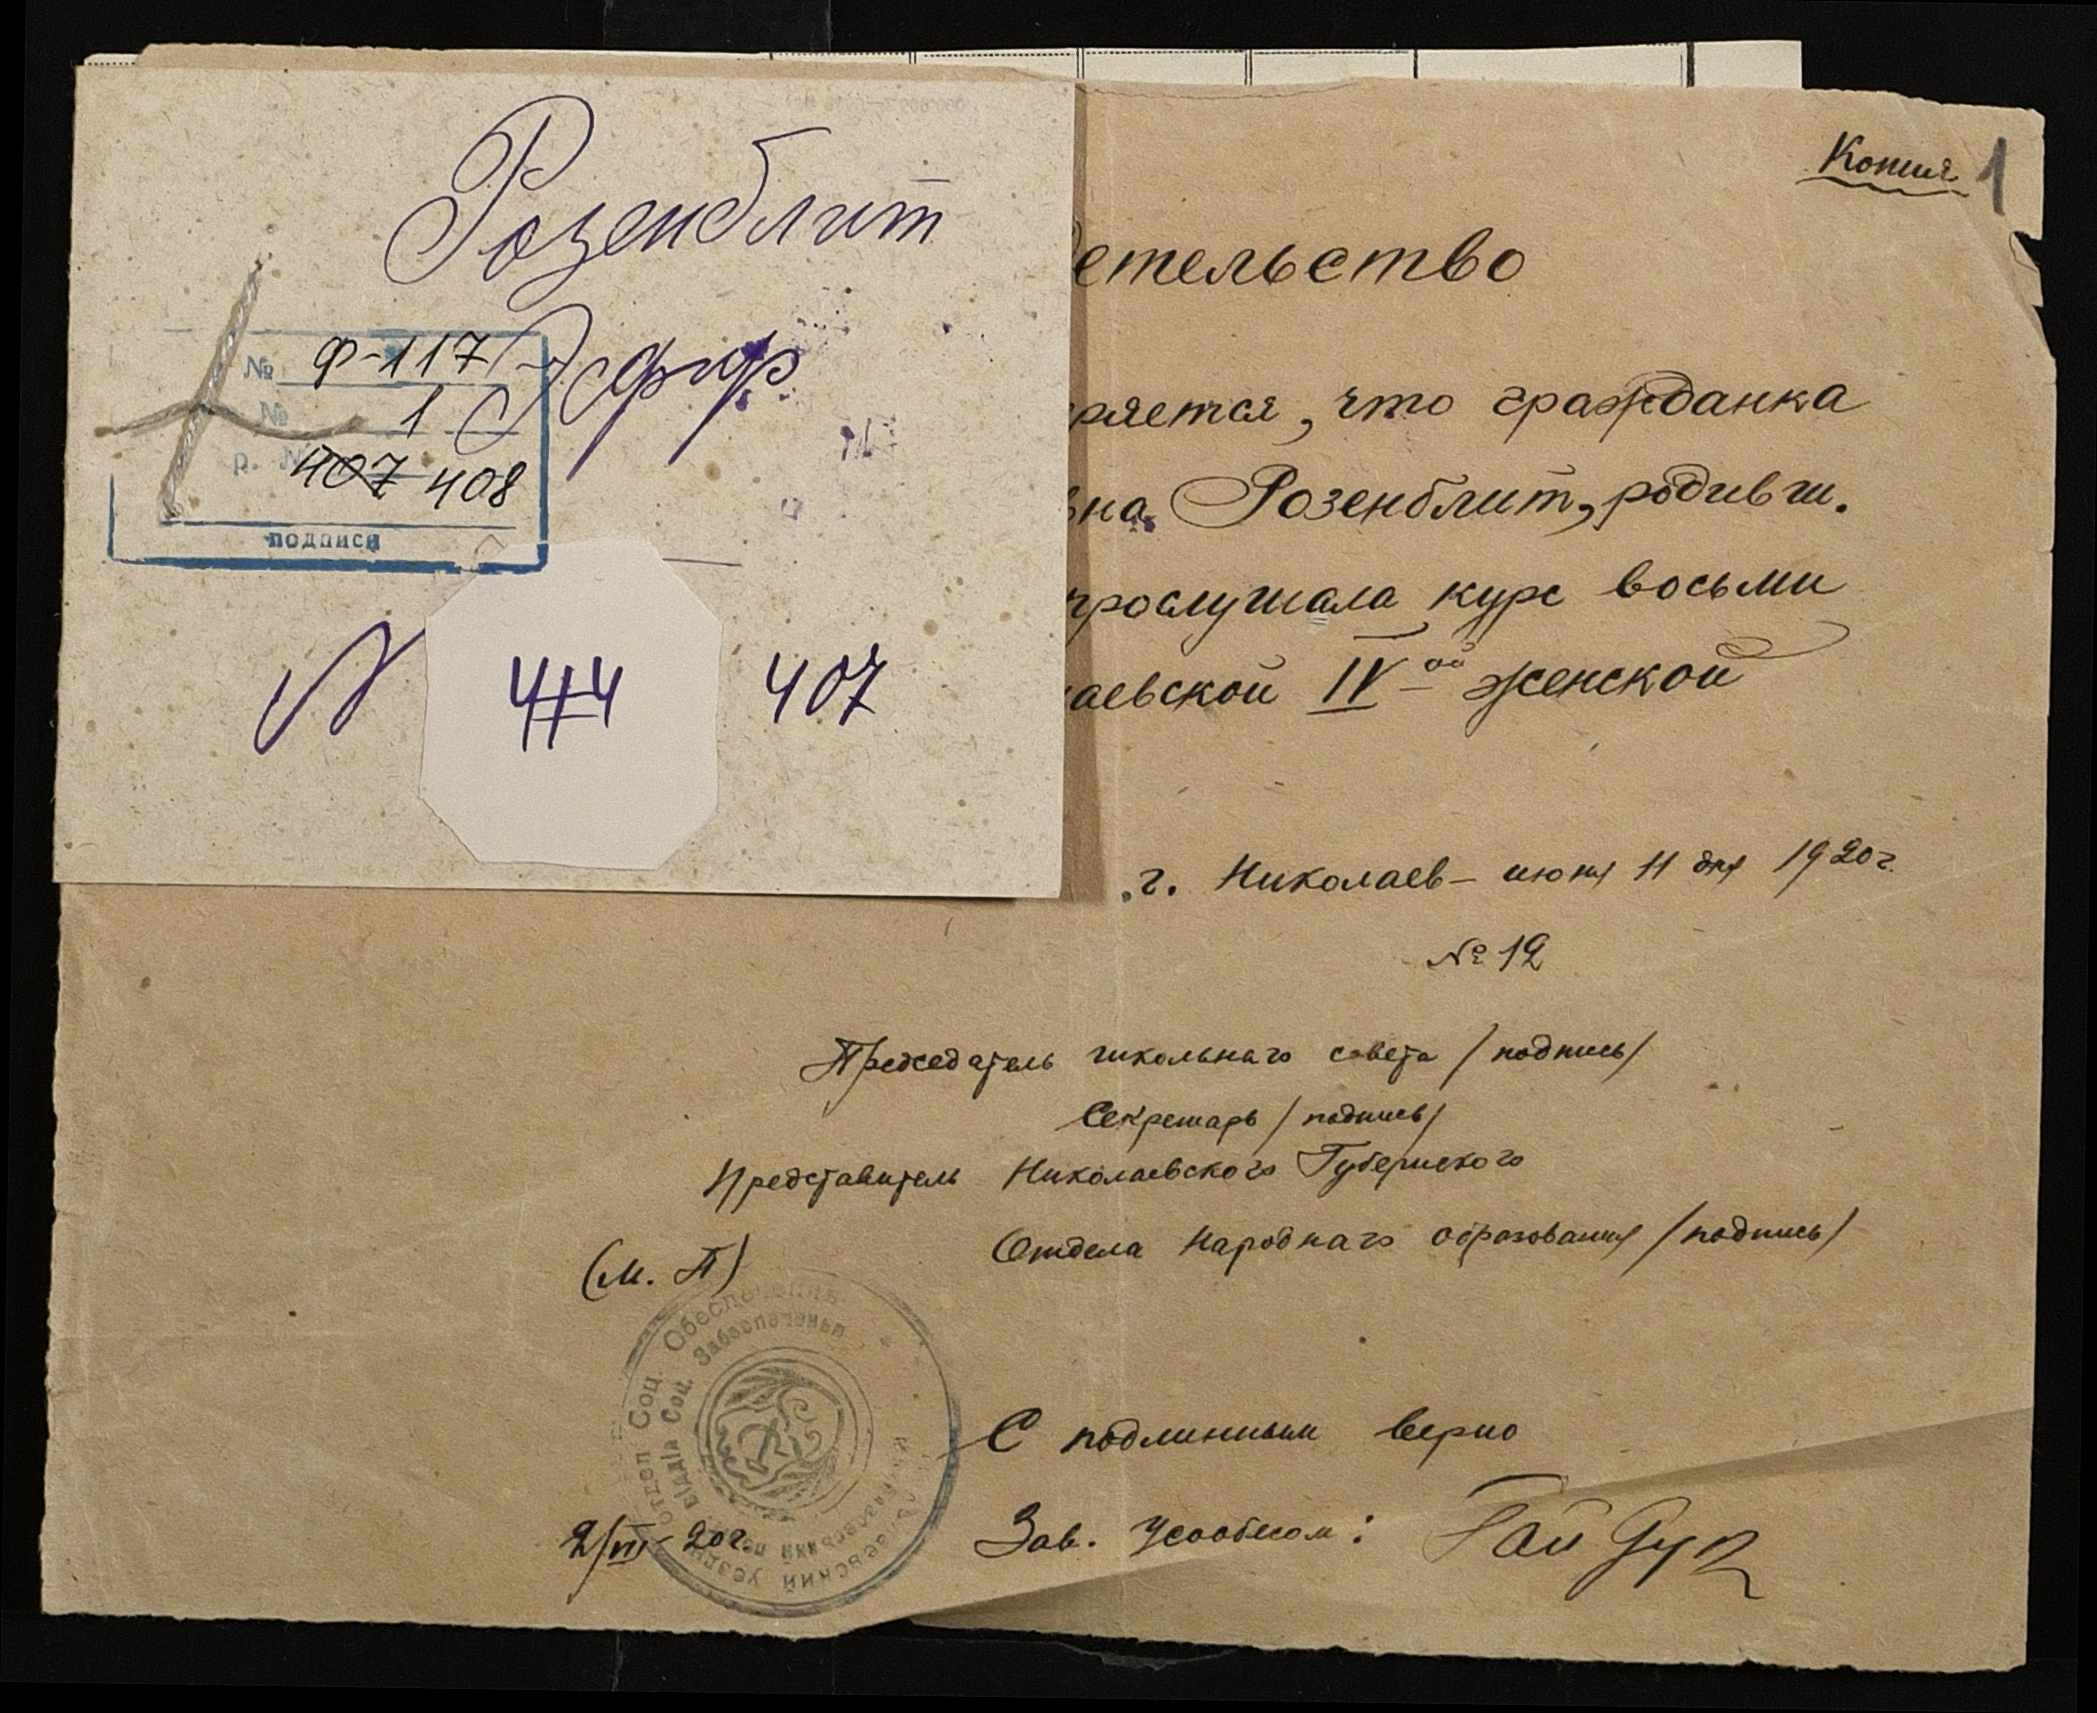 Розенблит
Эсфир
№ Ф-117
№ 1
р. № 407 408
подписи
N 414 407
Копия 1
етельство
ряется, что гражданка
вна Розенблит, родивш.
прослушала курс восьми
аевской IVой женской
г. Николаев – июня 11 дня 1920 г.
№ 12
Председатель школьнаго совета /подпись/
Секретарь /подпись/
Представитель Николаевского Губернского
Отдела Народнаго образования /подпись/
(М. П)
Отдел Соц. Обеспечения
Відділ Соц. Забеспечення
С подлинным верно
2/VII-20 г.
Зав. Усообесом: Гайдук